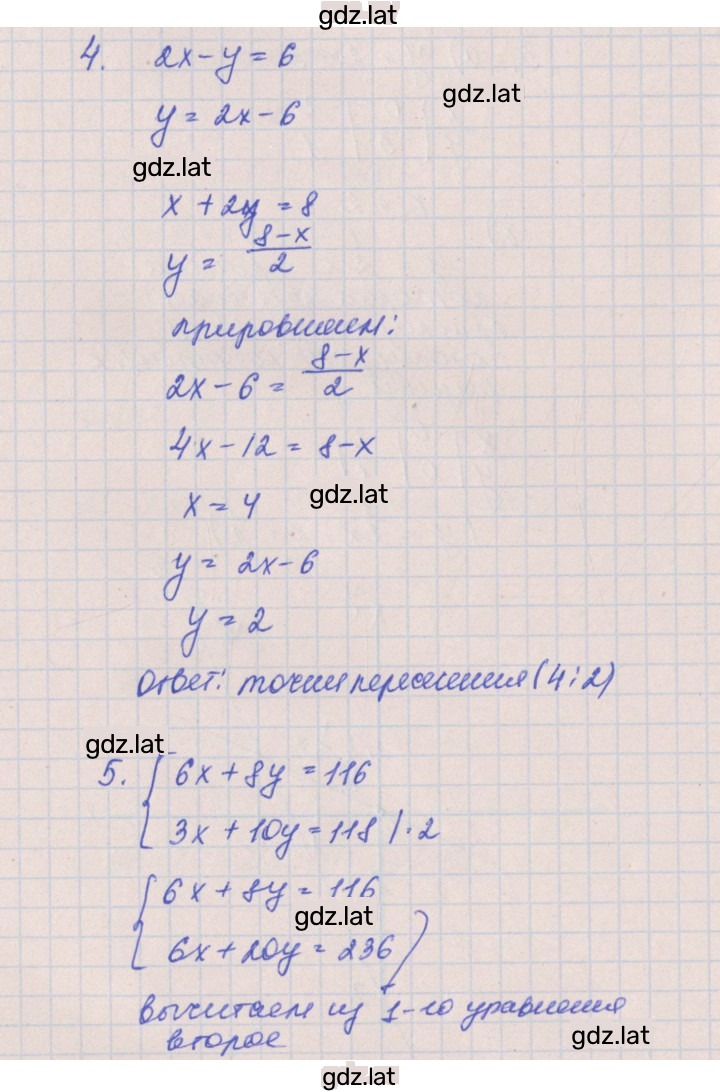 gdz.lat
4. 2x - y = 6
gdz.lat
y = 2x - 6
gdz.lat
x + 2y = 8
y = (8-x)/2
приравниваем:
2x - 6 = (8-x)/2
4x - 12 = 8 - x
x = 4
gdz.lat
y = 2x - 6
y = 2
Ответ: точки пересечения (4; 2)
gdz.lat
5. { 6x + 8y = 116
3x + 10y = 118 | · 2
{ 6x + 8y = 116
gdz.lat
6x + 20y = 236 )
вычитаем из 1-го уравнения
второе
gdz.lat
gdz.lat